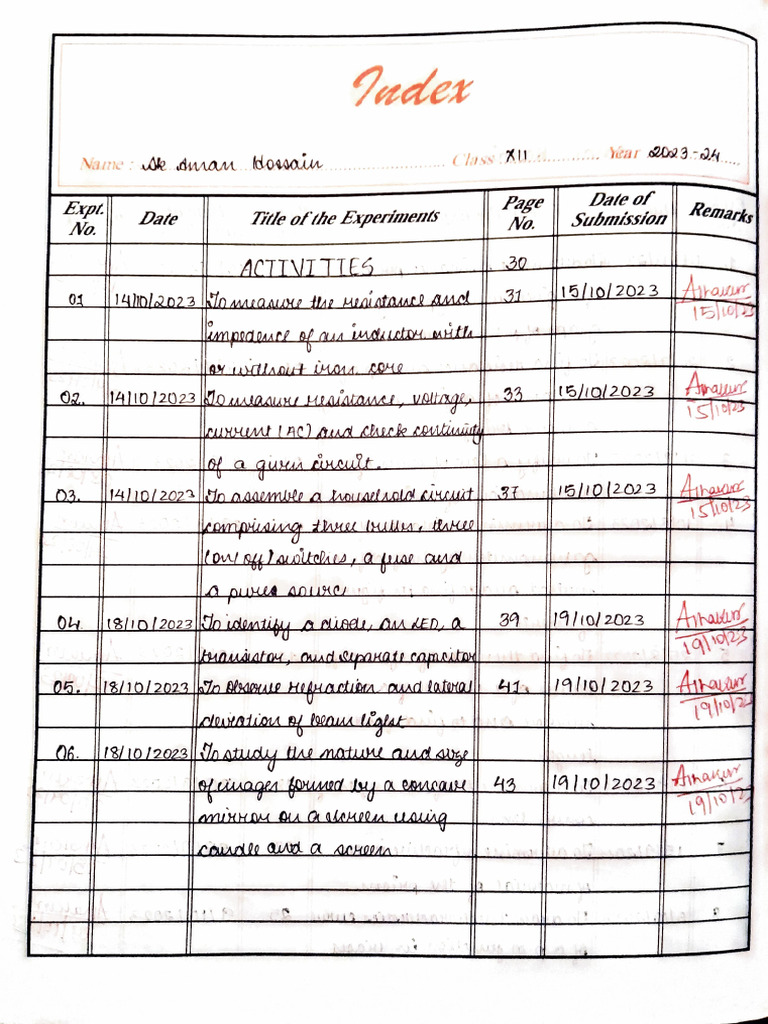 Index
Name : Sk Aman Hossain Class : XII Year 2023-24
Expt. No. Date Title of the Experiments Page No. Date of Submission Remarks
ACTIVITIES 30
01 14/10/2023 To measure the resistance and 31 15/10/2023
15/10/23
impedence of an inductor with
or without iron core
02. 14/10/2023 To measure resistance, voltage, 33 15/10/2023
15/10/23
current (AC) and check continuity
of a given circuit.
03. 14/10/2023 To assemble a household circuit 37 15/10/2023
15/10/23
comprising three bulbs, three
(on/off) switches, a fuse and
a source
04. 18/10/2023 To identify a diode, an LED, a 39 19/10/2023
19/10/23
transistor, and separate capacitor
05. 18/10/2023 To observe refraction and lateral 41. 19/10/2023
19/10/23
deviation of beam light
06. 18/10/2023 To study the nature and size
of images formed by a concave 43 19/10/2023
19/10/23
mirror on a screen using
candle and a screen